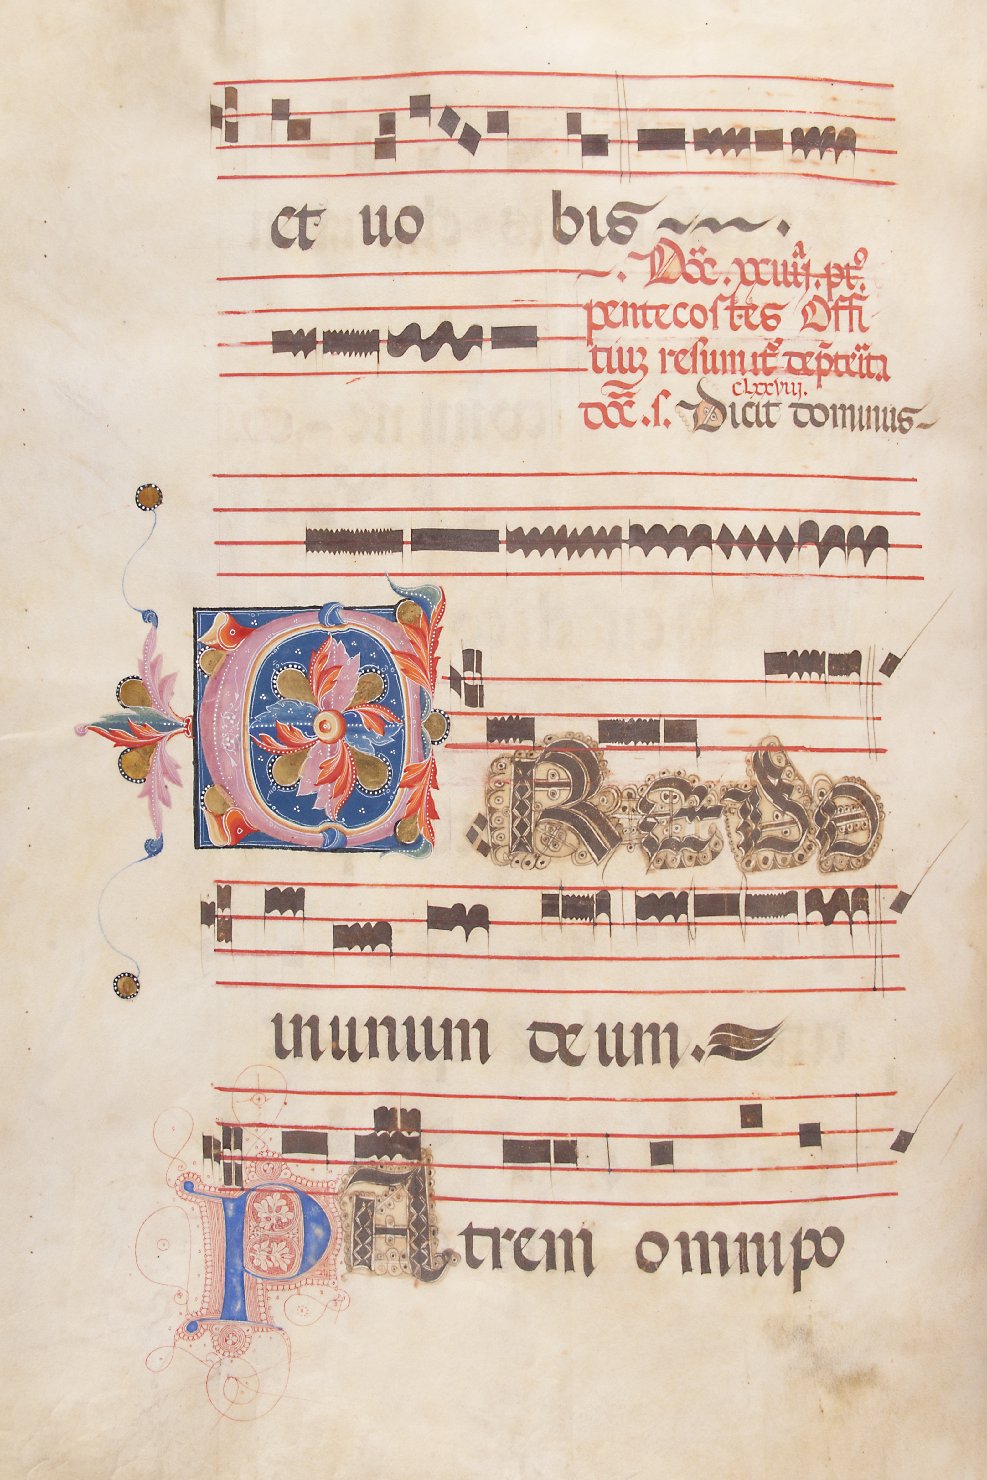 et uo bis
Doc̄. xxiiij. pt᷒
pentecostes Offi
tiuʒ resumit᷒ de
doc̄. s. Dicit dominus
clxxviii.
CREDO
in unum deum.
PAtrem omnipo